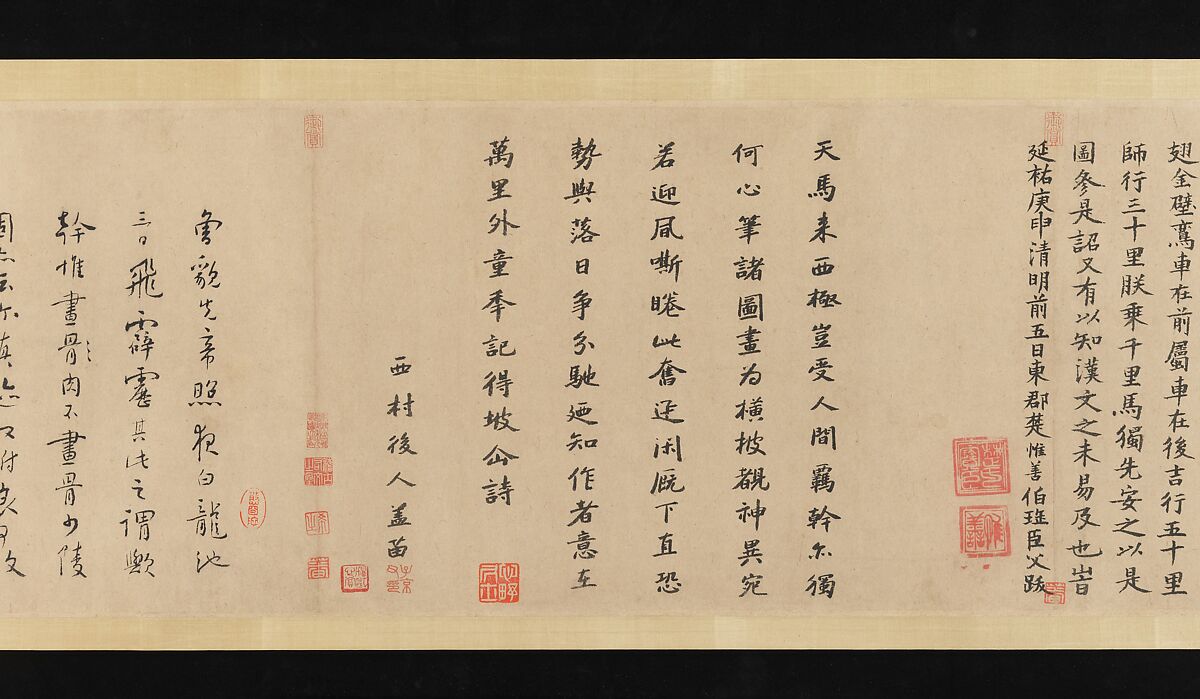 翅金璧鸞車在前屬車在後吉行五十里
師行三十里朕乗千里馬獨先安之以是
圖參是詔又有以知漢文之未易及也峕
延祐庚申清明前五日東郡楚惟善伯珪臣父跋
天馬来西極豈受人間羈幹尓獨
何心筆諸圖畫为橫披觀神異宛
若迎風嘶睠此奮迅閑厩下直恐
勢與落日争分馳廼知作者意在
萬里外童秊記得坡仚詩
西村後人盖苗
曽貌先帝照夜白龍池
三日飛霹靂其此之謂歟
幹惟畫肉不畫骨少陵